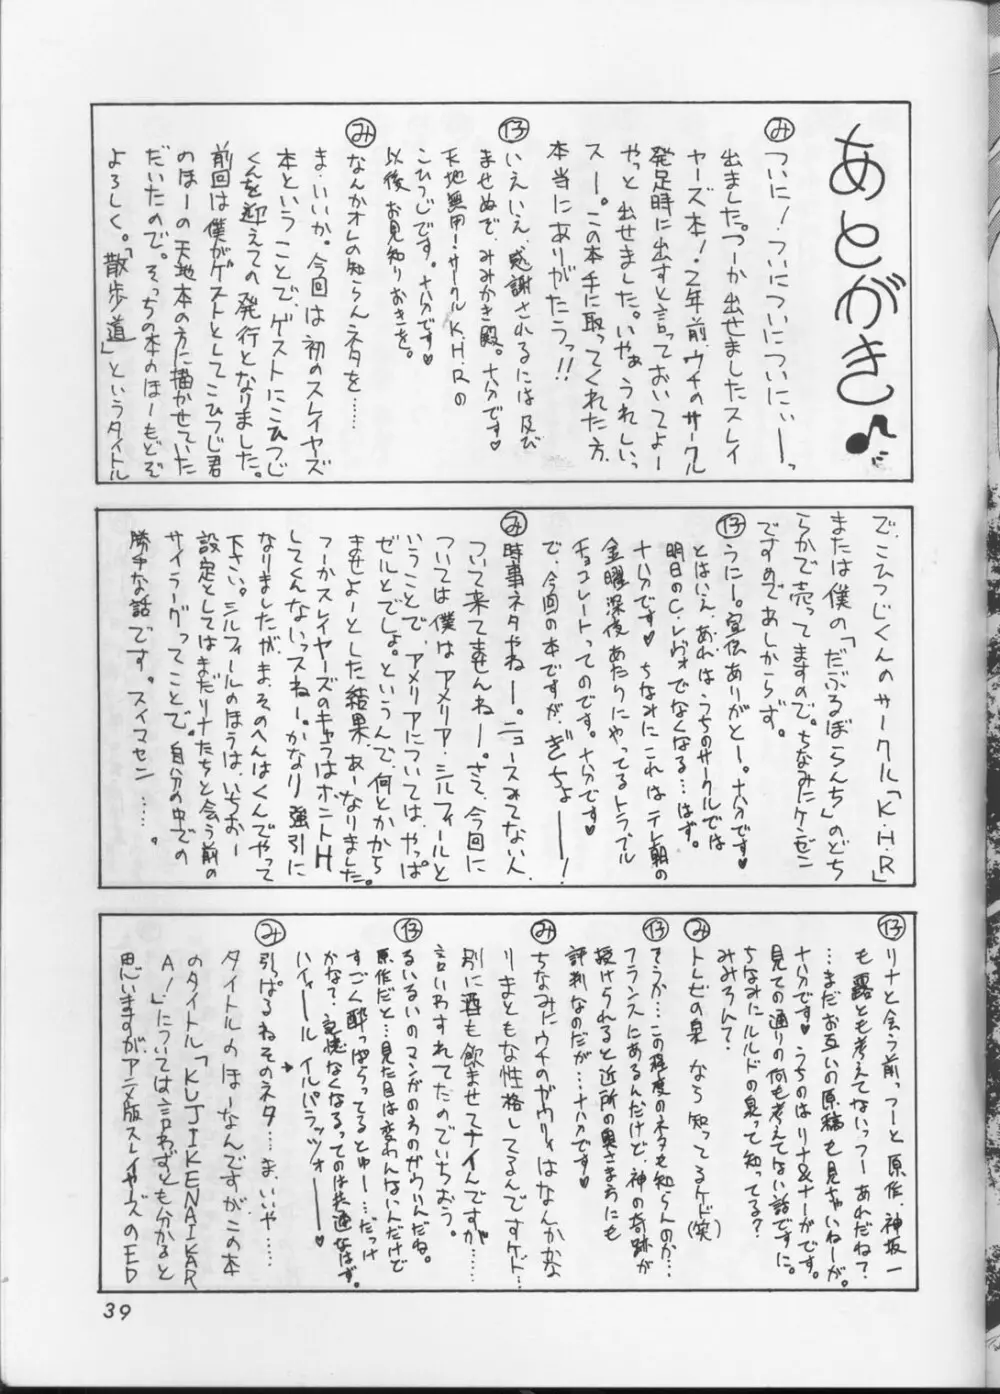 あとがき♪
み ついに!ついについについにぃーっ
出ました。つーか出せましたスレイ
ヤーズ本!2年前、ウチのサークル
発足時に出すと言っておいてよー
やっと出せました。いやぁうれしいっ
スー。この本手に取ってくれた方、
本当にありがたうっ!!
仔 いえいえ、感謝されるには及び
ませぬで、みみかき殿。十分です♥
天地無用!サークルK.H.Rの
こひつじです。十分です♥
以後、お見知りおきを。
み なんかオレの知らんネタを……
ま、いいか。今回は初のスレイヤーズ
本ということで、ゲストにこひつじ
くんを迎えての発行となりました。
前回は僕がゲストとしてこひつじ君
のほーの天地本の方に描かせていた
だいたので。そっちの本のほーもどぞ
よろしく。「散歩道」というタイトル
で、こひつじくんのサークル「K.H.R」
または僕の「だぶるぼらんち」のどち
らかで売ってますので。ちなみにケンゼン
ですのであしからず。
仔 うにー。宣伝ありがとー。十分です♥
とはいえ、あれはうちのサークルでは
明日のC.レヴォでなくなる…はず。
十分です♥ ちなみにこれはテレ朝の
金曜深夜あたりにやってるトラブル
チョコレートってのです。十分です♥
で、今回の本ですが、ぎちょーーー!
み 時事ネタやねー。ニュースみてない人
ついて来てませんねー。さて、今回に
ついては僕はアメリア、シルフィールと
いうことで、アメリアについては、やっぱ
ゼルとでしょ。というんで、何とかから
ませよーとした結果、あーなりました。
つーかスレイヤーズのキャラはホントH
してくんないっスねー。かなり強引に
なりましたが、ま、そのへんはくんでやって
下さい。シルフィールのほうは、いちおー
設定としてはまだリナたちと会う前の
サイラーグってことで。自分の中での
勝手な話です。スイマセン……。
仔 リナと会う前っつーと原作、神坂一
も露とも考えてないっつーあれだね?
…まだお互いの原稿も見ちゃいねーが。
十分です♥ うちのはリナ&ナーガです。
見ての通りの何も考えてない話ですに。
ちなみにルルドの泉って知ってる?
みみろんて?
み トレビの泉なら知ってるケド(笑)
仔 そうか…この程度のネタも知らんのか…
フランスにあるんだけど、神の奇跡が
授けられると近所の奥さま方にも
評判なのだが…十分です♥
み ちなみにウチのガウリィはなんかかな
りまともな性格してるんですケド…
別に酒も飲ませてナイんですが……
言いわすれてたのでいちおう。
仔 るいるいのマンガのそのがウリィんだね。
原作だと…見た目は変わんないんだけど
すごく酔っぱらってるとゆー…だっけ
かな?記憶なくなるってのは共通なはず。
ハイィールイルパラッツォーーー♥
み 引っぱるねそのネタ…ま、いいや……
タイトルのほーなんですが、この本
のタイトル「KUJIKENAIKAR
A!」については言わずとも分かると
思いますが、アニメ版スレイヤーズのED
39